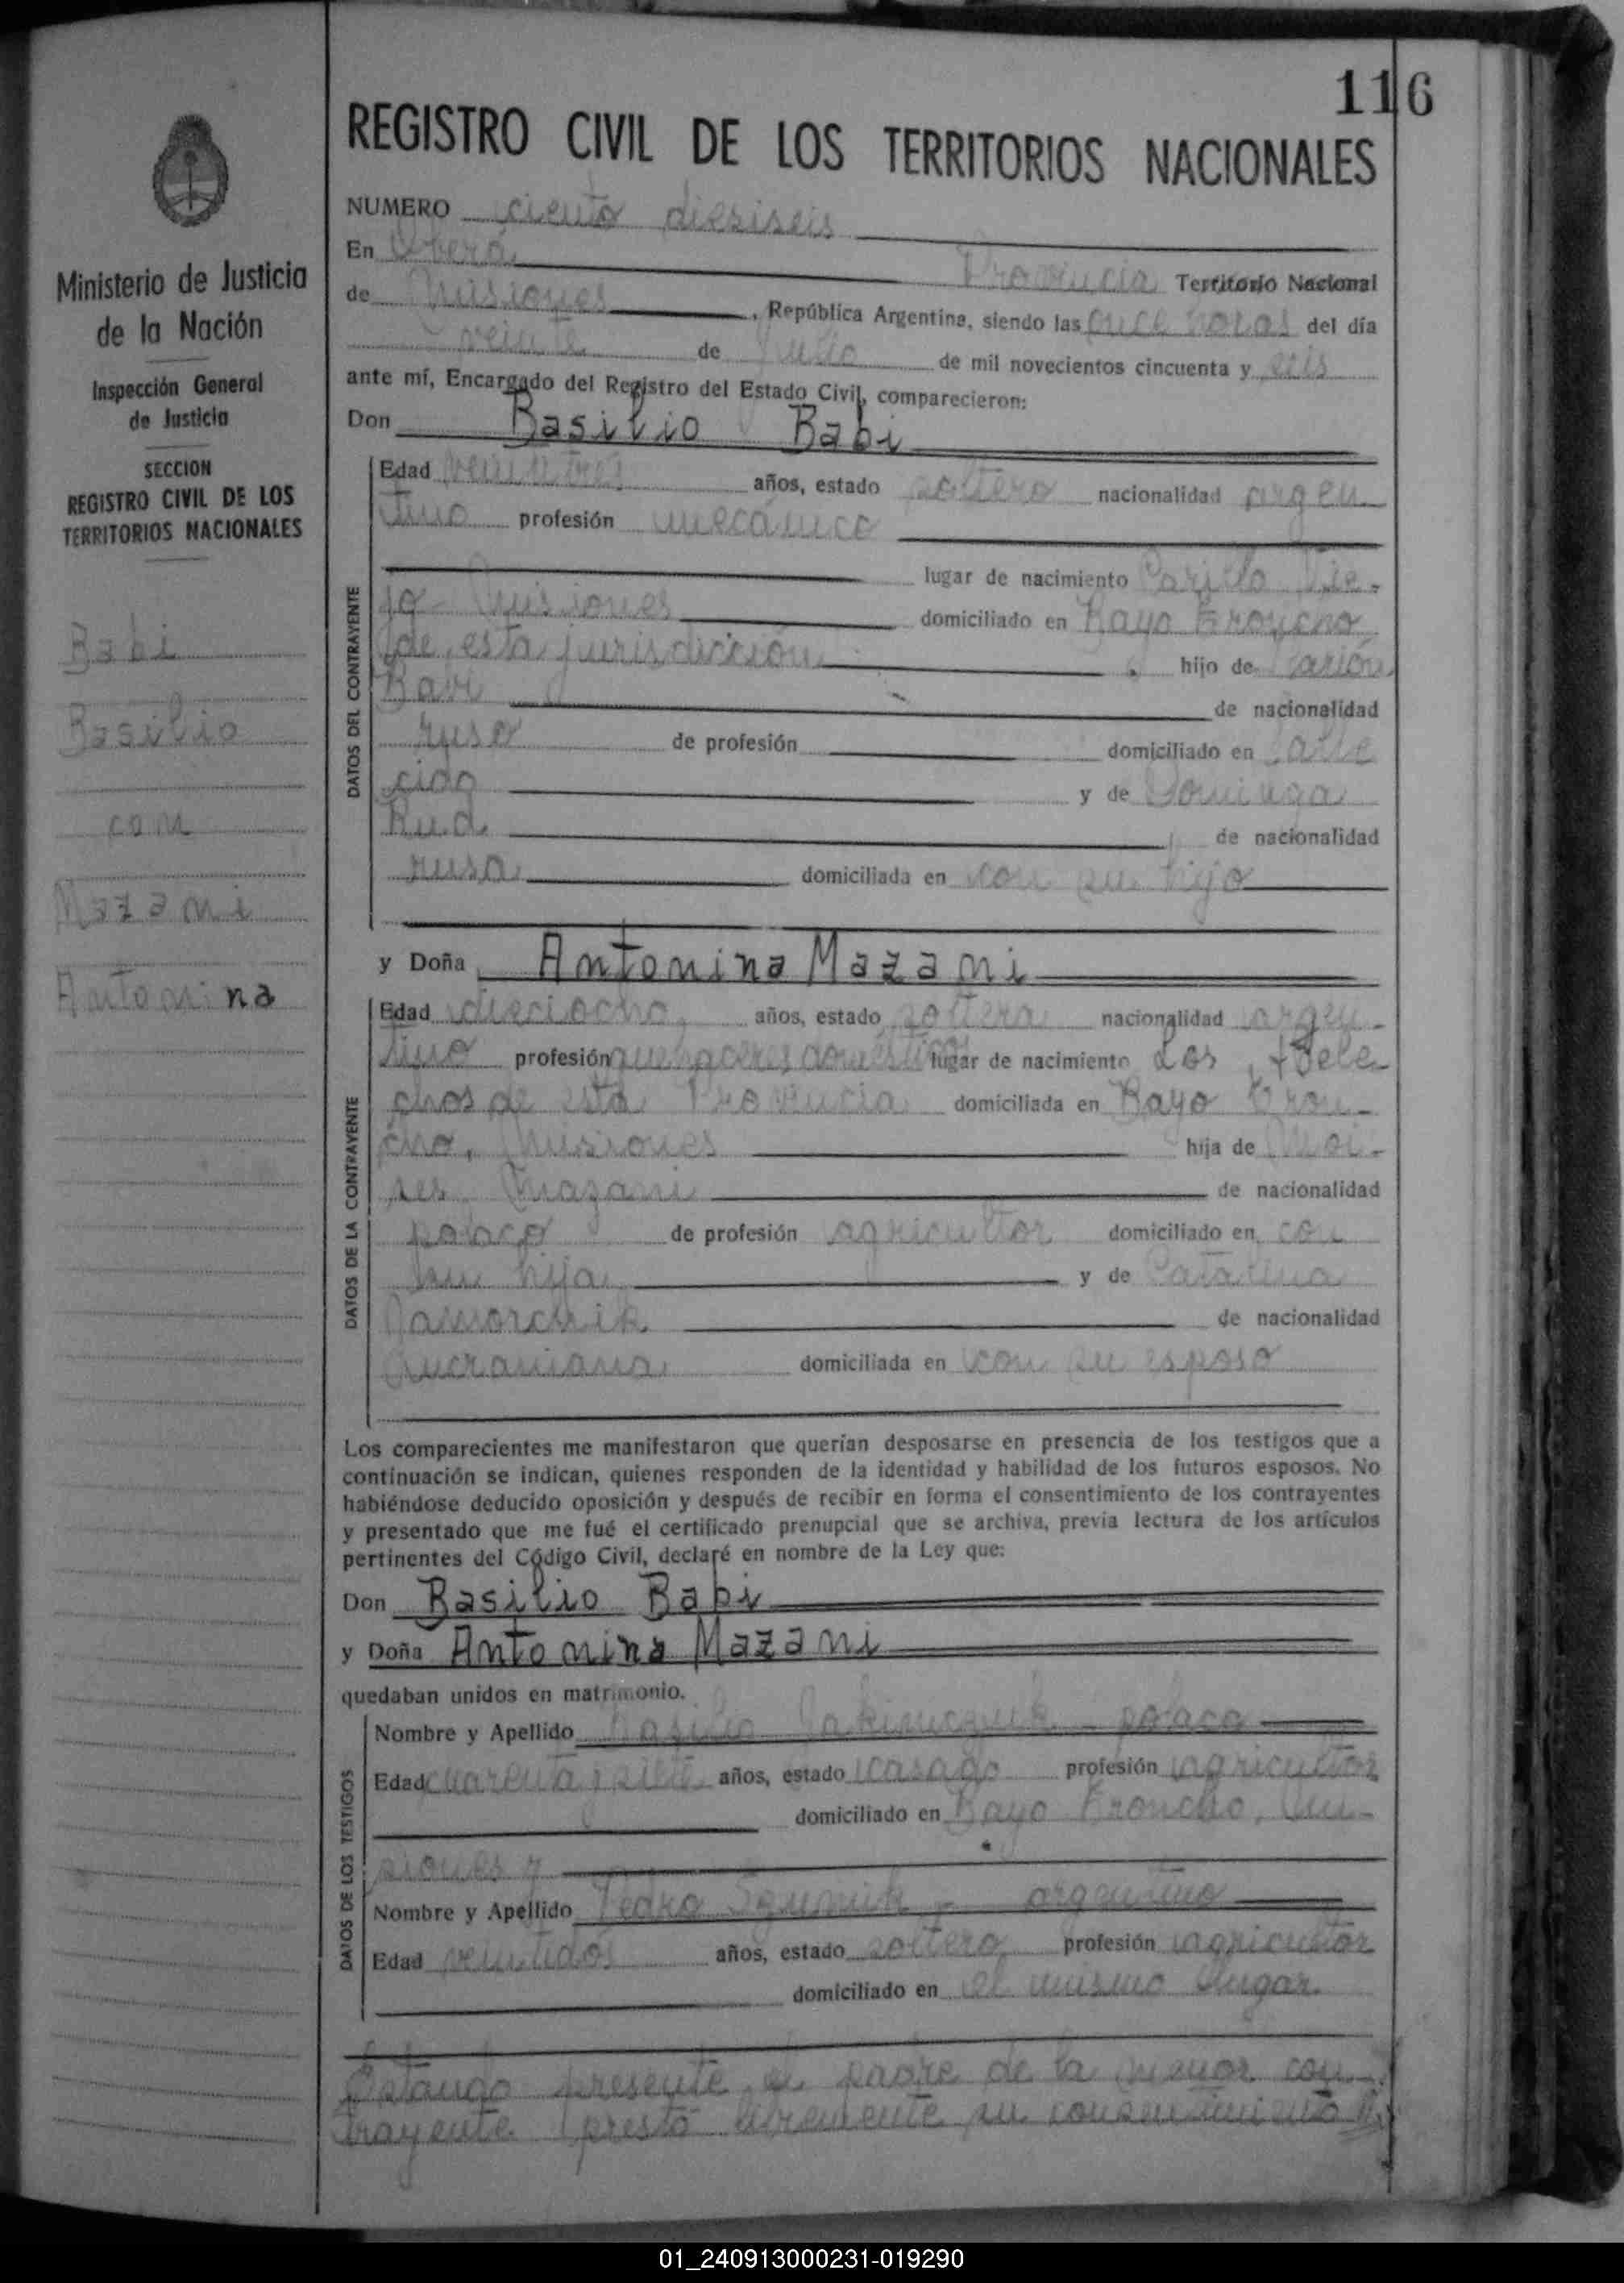 116
REGISTRO CIVIL DE LOS TERRITORIOS NACIONALES
Ministerio de Justicia
de la Nación
Inspección General
de Justicia
SECCION
REGISTRO CIVIL DE LOS
TERRITORIOS NACIONALES
Babi
Basilio
con
Mazani
Antonina
NUMERO ciento dieziseis
En Oberá Provincia Territorio Nacional
de Misiones, República Argentina, siendo las once horas del día
veinte de Julio de mil novecientos cincuenta y seis
ante mí, Encargado del Registro del Estado Civil, comparecieron:
Don Basilio Babi
DATOS DEL CONTRAYENTE
Edad veintitres años, estado soltero nacionalidad argen
tino profesión mecánico
lugar de nacimiento Barilo Vie-
jo - Misiones domiciliado en Kayo Troncho
de esta jurisdicción, hijo de
Bavi de nacionalidad
ruso de profesión domiciliado en falle
cido y de Dominga
Rud de nacionalidad
rusa domiciliada en con su hijo
y Doña Antonina Mazani
DATOS DE LA CONTRAYENTE
Edad dieciocho años, estado soltera nacionalidad argen-
tino profesión quehaceres domésticos lugar de nacimiento Los Hele-
chos de esta Provincia domiciliada en Kayo Tron-
cho, Misiones hija de Moi-
ses Mazani de nacionalidad
polaco de profesión agricultor domiciliado en con
su hija y de Catalina
de nacionalidad
ucraniana domiciliada en con su esposo
Los comparecientes me manifestaron que querían desposarse en presencia de los testigos que a
continuación se indican, quienes responden de la identidad y habilidad de los futuros esposos. No
habiéndose deducido oposición y después de recibir en forma el consentimiento de los contrayentes
y presentado que me fué el certificado prenupcial que se archiva, previa lectura de los artículos
pertinentes del Código Civil, declaré en nombre de la Ley que:
Don Basilio Babi
y Doña Antonina Mazani
quedaban unidos en matrimonio.
DATOS DE LOS TESTIGOS
Nombre y Apellido Basilio polaco
Edad cuarenta y siete años, estado casado profesión agricultor
domiciliado en Kayo Troncho, Mi-
siones y
Nombre y Apellido Pedro argentino
Edad veintidos años, estado soltero profesión agricultor
domiciliado en el mismo lugar.
Estando presente el padre de la menor con-
trayente prestó libremente su consentimiento
01_240913000231-019290